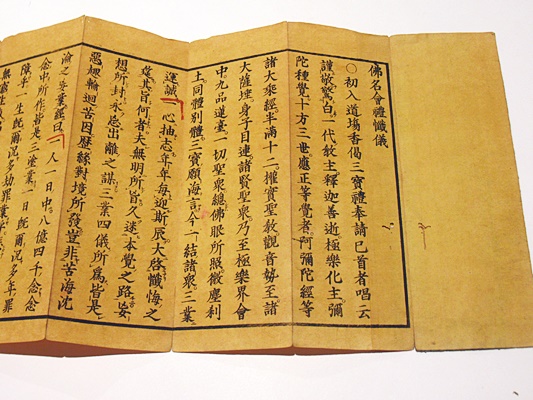 佛名會禮懺儀
○初入道場香偈三寶禮奉請已首者唱云
謹敬驚白一代敎主釋迦善逝極樂化主彌
陀種覺十方三世應正等覺者阿彌陀經等
諸大乘經半滿十二權實聖敎觀音勢至諸
大薩埵身子目連諸賢聖衆乃至極樂界會
中九品蓮臺一切聖衆總佛眼所照微塵刹
土同體別體三寶願海言今一結諸衆三業
運誠一心抽志年年每迎斯辰大啓懺悔之
筵其旨何者夫無明所盲久迷本覺之路妄
想所封永忘出離之謀三業四儀所爲皆是
惡趣輪迴苦因歷緣對境所發豈非苦海沈
淪之妄業經曰一人一日中八億四千念念
念中所作皆是三塗業一日既爾況多年罪
障乎一生既爾況多劫罪業乎